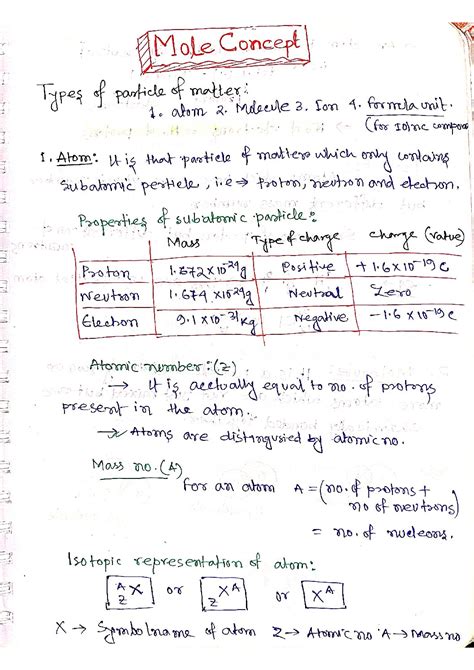 Mole Concept
Types of particle of matter:
1. atom 2. Molecule 3. Ion 4. formula unit.
(for Ioinc compoun
1. Atom: It is that particle of matters which only contains
subatomic perticle, i.e → Proton, neutron and electron.
Properties of subatomic particle:
Mass Type of charge charge (value)
Proton 1.672×10⁻²⁴g Positive +1.6×10⁻¹⁹C
Neutron 1.674×10²⁴g Neutral Zero
Electron 9.1×10⁻³¹Kg Negative −1.6×10⁻¹⁹C
Atomic number:(Z)
→ It is acctually equal to no. of protons
present in the atom.
→ Atoms are distingusied by atomic no.
Mass no.(A)
For an atom A = (no. of protons +
no of neutrons)
= no. of nucleons.
Isotopic representation of atom:
A Z X or Z X A or X A
X → Symbol name of atom Z → Atomic no A → Mass no